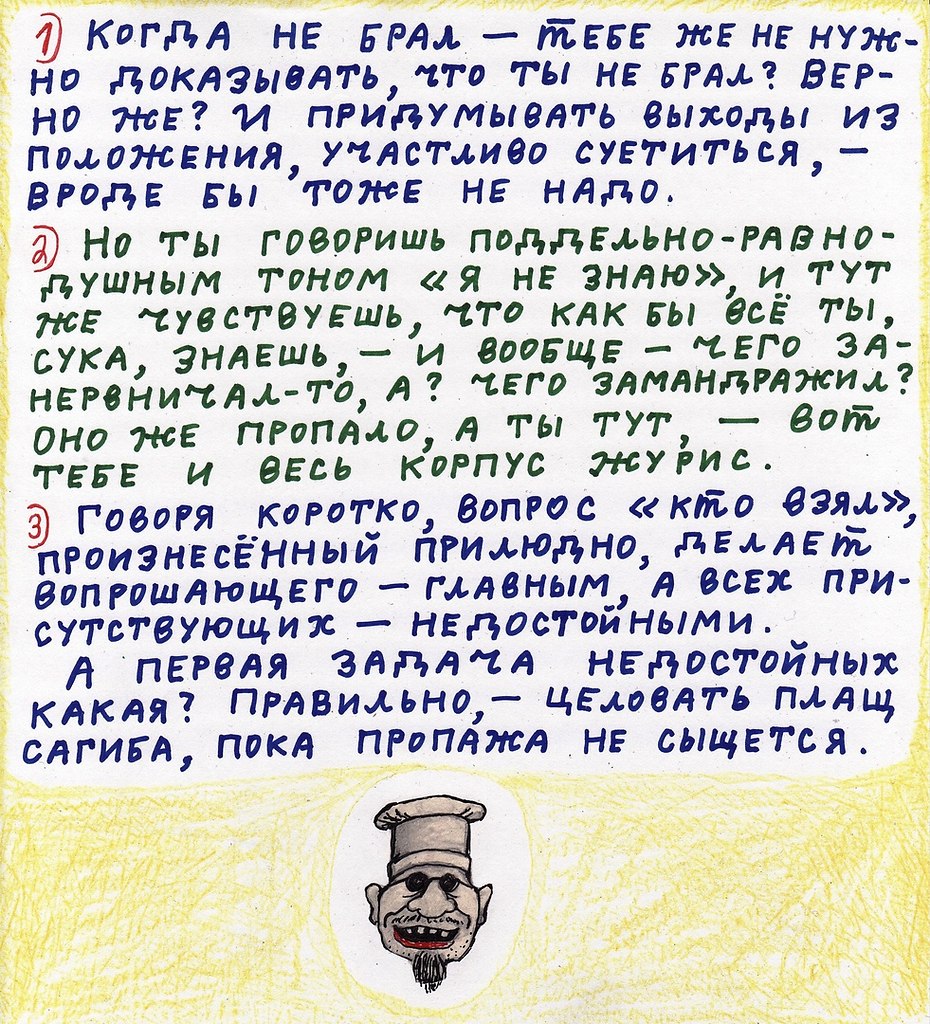 1) Когда не брал — тебе же не нуж-
но доказывать, что ты не брал? Вер-
но же? И придумывать выходы из
положения, участливо суетиться, —
вроде бы тоже не надо.
2) Но ты говоришь поддельно-равно-
душным тоном «я не знаю», и тут
же чувствуешь, что как бы всё ты,
сука, знаешь, — и вообще — чего за-
нервничал-то, а? Чего замандражил?
Оно же пропало, а ты тут, — вот
тебе и весь корпус журис.
3) Говоря коротко, вопрос «кто взял»,
произнесённый прилюдно, делает
вопрошающего — главным, а всех при-
сутствующих — недостойными.
А первая задача недостойных
какая? Правильно, — целовать плащ
сагиба, пока пропажа не сыщется.